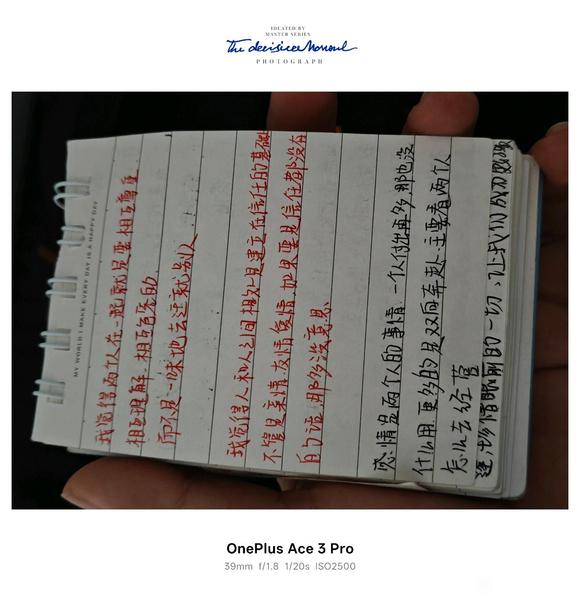 EDLATED BY
MASTER SERIES
The decisive Moment
PHOTOGRAPH
MY WORLD I MAKE EVERY DAY IS A HAPPY DAY
我觉得两个人在一起就是要相互尊重
相互理解,相互包容的
而不是一味地去迁就别人
我觉得人和人之间相处是建立在信任的基础
不管是亲情,友情,爱情,如果要是信任都没有
的话,那多没意思
感情是两个人的事情,一个人付出再多,那也没
什么用,更多的是双向奔赴,主要看两个人
怎么去经营
珍惜眼前的一切,让我们成为
OnePlus Ace 3 Pro
39mm f/1.8 1/20s ISO2500